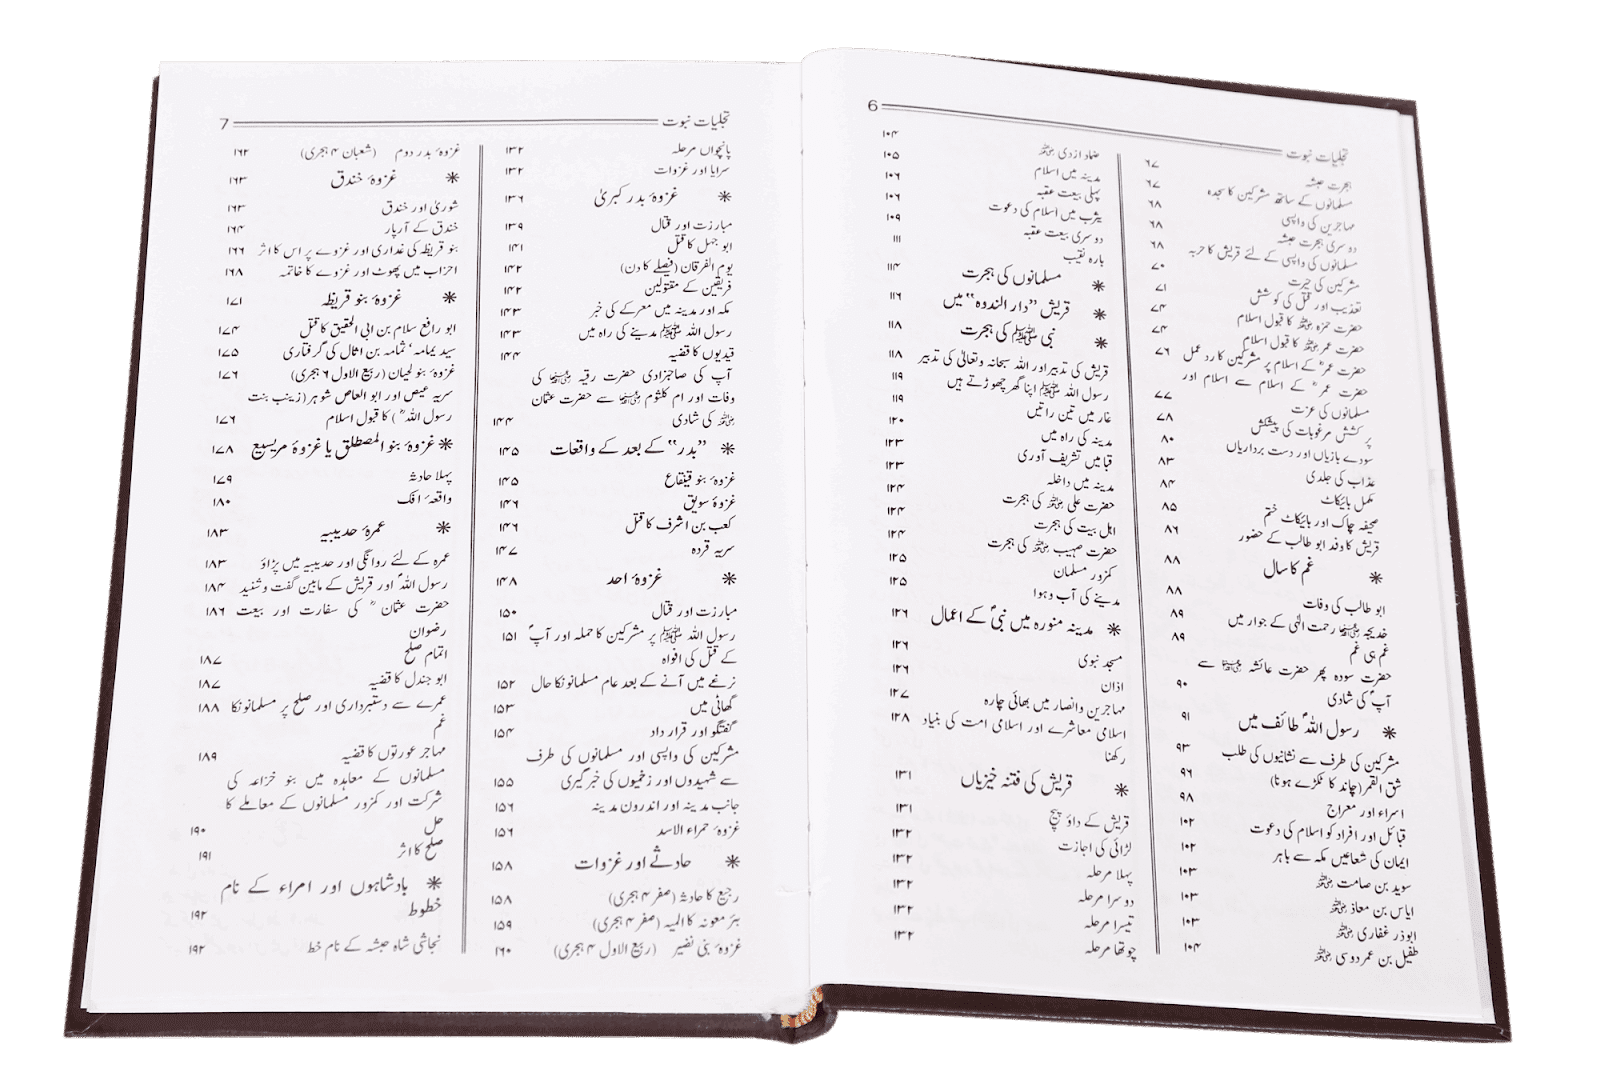 تجلیات نبوت 6
ہجرت حبشہ ۶۷
مسلمانوں کے ساتھ مشرکین کا سجدہ ۶۷
مہاجرین کی واپسی ۶۸
دوسری ہجرت حبشہ ۶۸
مسلمانوں کی واپسی کے لئے قریش کا حربہ ۶۸
مشرکین کی حیرت ۷۰
تعذیب اور قتل کی کوشش ۷۱
حضرت حمزہ ؓ کا قبول اسلام ۷۴
حضرت عمر ؓ کا قبول اسلام ۷۴
حضرت عمر ؓ کے اسلام پر مشرکین کا رد عمل ۷۶
حضرت عمر ؓ کے اسلام سے اسلام اور
مسلمانوں کی عزت ۷۷
پرکشش مرغوبات کی پیشکش ۷۸
سودے بازیاں اور دست برداریاں ۸۰
عذاب کی جلدی ۸۳
مکمل بائیکاٹ ۸۴
صحیفہ چاک اور بائیکاٹ ختم ۸۵
قریش کا وفد ابو طالب کے حضور ۸۶
✳ غم کا سال ۸۸
ابو طالب کی وفات ۸۸
خدیجہ ؓ رحمت الٰہی کے جوار میں ۸۹
غم ہی غم ۸۹
حضرت سودہ پھر حضرت عائشہ ؓ سے
آپؐ کی شادی ۹۰
✳ رسول اللہؐ طائف میں ۹۱
مشرکین کی طرف سے نشانیوں کی طلب ۹۳
شق القمر (چاند کا ٹکڑے ہونا) ۹۶
اسراء اور معراج ۹۸
قبائل اور افراد کو اسلام کی دعوت ۱۰۲
ایمان کی شعاعیں مکہ سے باہر ۱۰۲
سوید بن صامت ؓ ۱۰۳
ایاس بن معاذ ؓ ۱۰۳
ابوذر غفاری ؓ ۱۰۳
طفیل بن عمر دوسی ؓ ۱۰۴
ضماد ازدی ؓ ۱۰۴
مدینہ میں اسلام ۱۰۵
پہلی بیعت عقبہ ۱۰۶
یثرب میں اسلام کی دعوت ۱۰۶
دوسری بیعت عقبہ ۱۰۹
بارہ نقیب ۱۱۱
✳ مسلمانوں کی ہجرت ۱۱۴
✳ قریش ”دار الندوہ“ میں ۱۱۶
✳ نبی ﷺ کی ہجرت ۱۱۸
قریش کی تدبیر اور اللہ سبحانہ وتعالیٰ کی تدبیر ۱۱۸
رسول اللہ ﷺ اپنا گھر چھوڑتے ہیں ۱۱۹
غار میں تین راتیں ۱۱۹
مدینہ کی راہ میں ۱۲۰
قبا میں تشریف آوری ۱۲۳
مدینہ میں داخلہ ۱۲۳
حضرت علی ؓ کی ہجرت ۱۲۴
اہل بیت کی ہجرت ۱۲۴
حضرت صہیب ؓ کی ہجرت ۱۲۴
کمزور مسلمان ۱۲۵
مدینے کی آب وہوا ۱۲۵
✳ مدینہ منورہ میں نبیؐ کے اعمال ۱۲۶
مسجد نبوی ۱۲۶
اذان ۱۲۶
مہاجرین وانصار میں بھائی چارہ ۱۲۷
اسلامی معاشرے اور اسلامی امت کی بنیاد ۱۲۸
رکھنا
✳ قریش کی فتنہ خیزیاں ۱۳۱
قریش کے داؤ پیچ ۱۳۱
لڑائی کی اجازت ۱۳۲
پہلا مرحلہ ۱۳۲
دوسرا مرحلہ ۱۳۲
تیسرا مرحلہ ۱۳۲
چوتھا مرحلہ ۱۳۲
تجلیات نبوت 7
پانچواں مرحلہ ۱۳۲
سرایا اور غزوات ۱۳۲
✳ غزوۂ بدر کبریٰ ۱۳۶
مبارزت اور قتال ۱۳۹
ابو جہل کا قتل ۱۴۱
یوم الفرقان (فیصلے کا دن) ۱۴۲
فریقین کے مقتولین ۱۴۲
مکہ اور مدینہ میں معرکے کی خبر ۱۴۳
رسول اللہ ﷺ مدینے کی راہ میں ۱۴۳
قیدیوں کا قضیہ ۱۴۴
آپ کی صاحبزادی حضرت رقیہ ؓ کی
وفات اور ام کلثوم ؓ سے حضرت عثمان
ؓ کی شادی ۱۴۴
✳ ”بدر“ کے بعد کے واقعات ۱۴۵
غزوۂ بنو قینقاع ۱۴۵
غزوۂ سویق ۱۴۶
کعب بن اشرف کا قتل ۱۴۶
سریہ قردہ ۱۴۷
✳ غزوۂ احد ۱۴۸
مبارزت اور قتال ۱۵۰
رسول اللہ ﷺ پر مشرکین کا حملہ اور آپؐ ۱۵۱
کے قتل کی افواہ
نرغے میں آنے کے بعد عام مسلمانوںکا حال ۱۵۲
گھاٹی میں ۱۵۳
گفتگو اور قرار داد ۱۵۴
مشرکین کی واپسی اور مسلمانوں کی طرف
سے شہیدوں اور زخمیوں کی خبر گیری ۱۵۵
جانب مدینہ اور اندرون مدینہ ۱۵۶
غزوۂ حمراء الاسد ۱۵۶
✳ حادثے اور غزوات ۱۵۸
رجیع کا حادثہ (صفر ۴ ہجری) ۱۵۸
بئر معونہ کا المیہ (صفر ۴ ہجری) ۱۵۹
غزوۂ بنی نضیر (ربیع الاول ۴ ہجری) ۱۶۰
غزوۂ بدر دوم (شعبان ۴ ہجری) ۱۶۲
✳ غزوۂ خندق ۱۶۳
شوریٰ اور خندق ۱۶۳
خندق کے آرپار ۱۶۴
بنو قریظہ کی غداری اور غزوے پر اس کا اثر ۱۶۶
احزاب میں پھوٹ اور غزوے کا خاتمہ ۱۶۸
✳ غزوۂ بنو قریظہ ۱۷۱
ابو رافع سلام بن ابی الحقیق کا قتل ۱۷۴
سید یمامہ‘ ثمامہ بن اثال کی گرفتاری ۱۷۵
غزوۂ بنو لحیان (ربیع الاول ۶ ہجری) ۱۷۶
سریہ عیص اور ابو العاص شوہر (زینب بنت
رسول اللہؐ) کا قبول اسلام ۱۷۶
✳ غزوۂ بنو المصطلق یا غزوۂ مریسیع ۱۷۸
پہلا حادثہ ۱۷۹
واقعۂ افک ۱۸۰
✳ عمرۂ حدیبیہ ۱۸۳
عمرہ کے لئے روانگی اور حدیبیہ میں پڑاؤ ۱۸۳
رسول اللہؐ اور قریش کے مابین گفت وشنید ۱۸۴
حضرت عثمان ؓ کی سفارت اور بیعت ۱۸۶
رضوان
اتمام صلح ۱۸۷
ابو جندل کا قضیہ ۱۸۷
عمرے سے دستبرداری اور صلح پر مسلمانوںکا ۱۸۸
غم
مہاجر عورتوں کا قضیہ ۱۸۹
مسلمانوں کے معاہدہ میں بنو خزاعہ کی
شرکت اور کمزور مسلمانوں کے معاملے کا
حل ۱۹۰
صلح کا اثر ۱۹۱
✳ بادشاہوں اور امراء کے نام
خطوط ۱۹۲
نجاشی شاہ حبشہ کے نام خط ۱۹۲